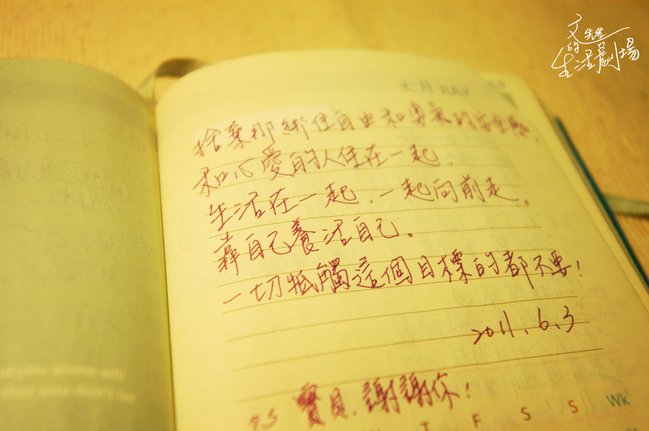 文先生
的
生活劇場
七月 JULY
捨棄那綁住自由和勇氣的安全感,
和心愛的人住在一起,
生活在一起,一起向前走。
靠自己養活自己。
一切牴觸這個目標的都不要!
2011.6.3
P.S 寶貝,謝謝你!
T F S S Wk